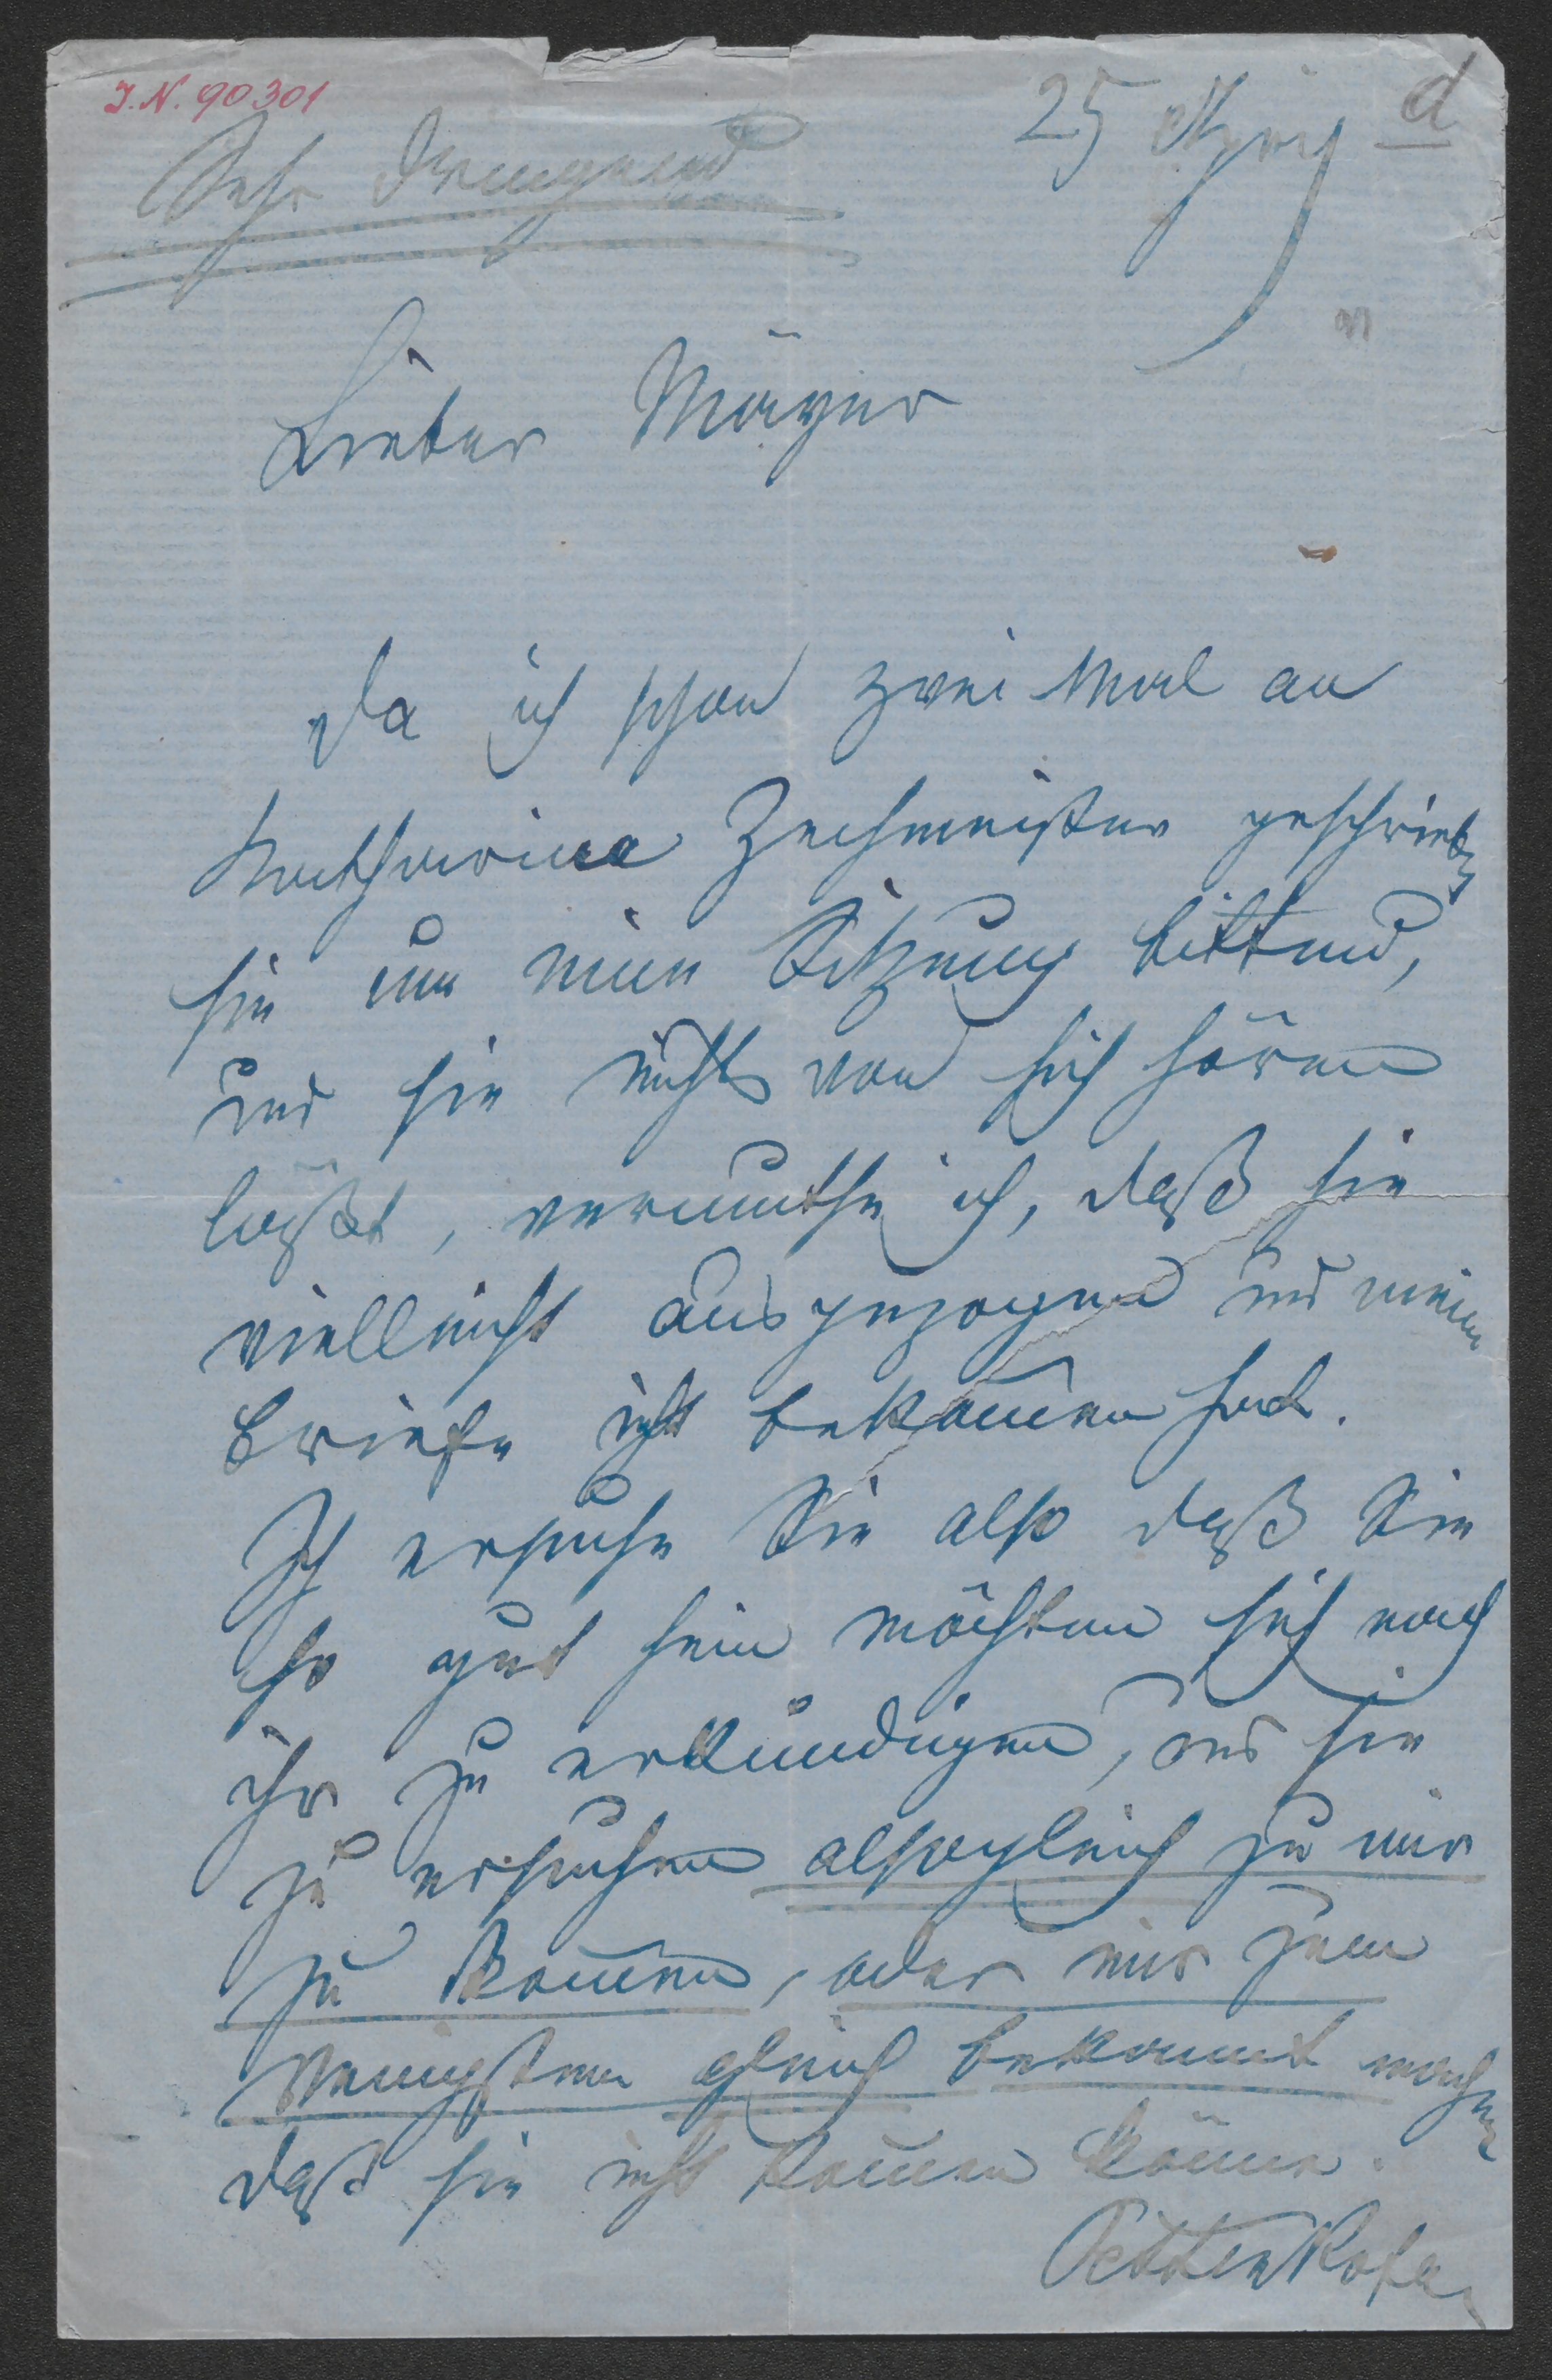 I. N. 90301
25 April
d
Sehr dringend
Lieber Mayer
Da ich schon zwei Mal an
Katharina Zechmeister geschrieben
sie um eine Sitzung bittend,
und sie nichts von sich hören
läßt, vermuthe ich, daß sie
vielleicht ausgezogen und meine
Briefe nicht bekom̄en hat.
Ich ersuche Sie also daß Sie
so gut sein möchten sich nach
ihr zu erkundigen, und sie
zu ersuchen alsogleich zu mir
zu kom̄en, oder mir zum
wenigsten gleich bekannt machen
daß sie nicht kom̄en könne.
Pettenkofen